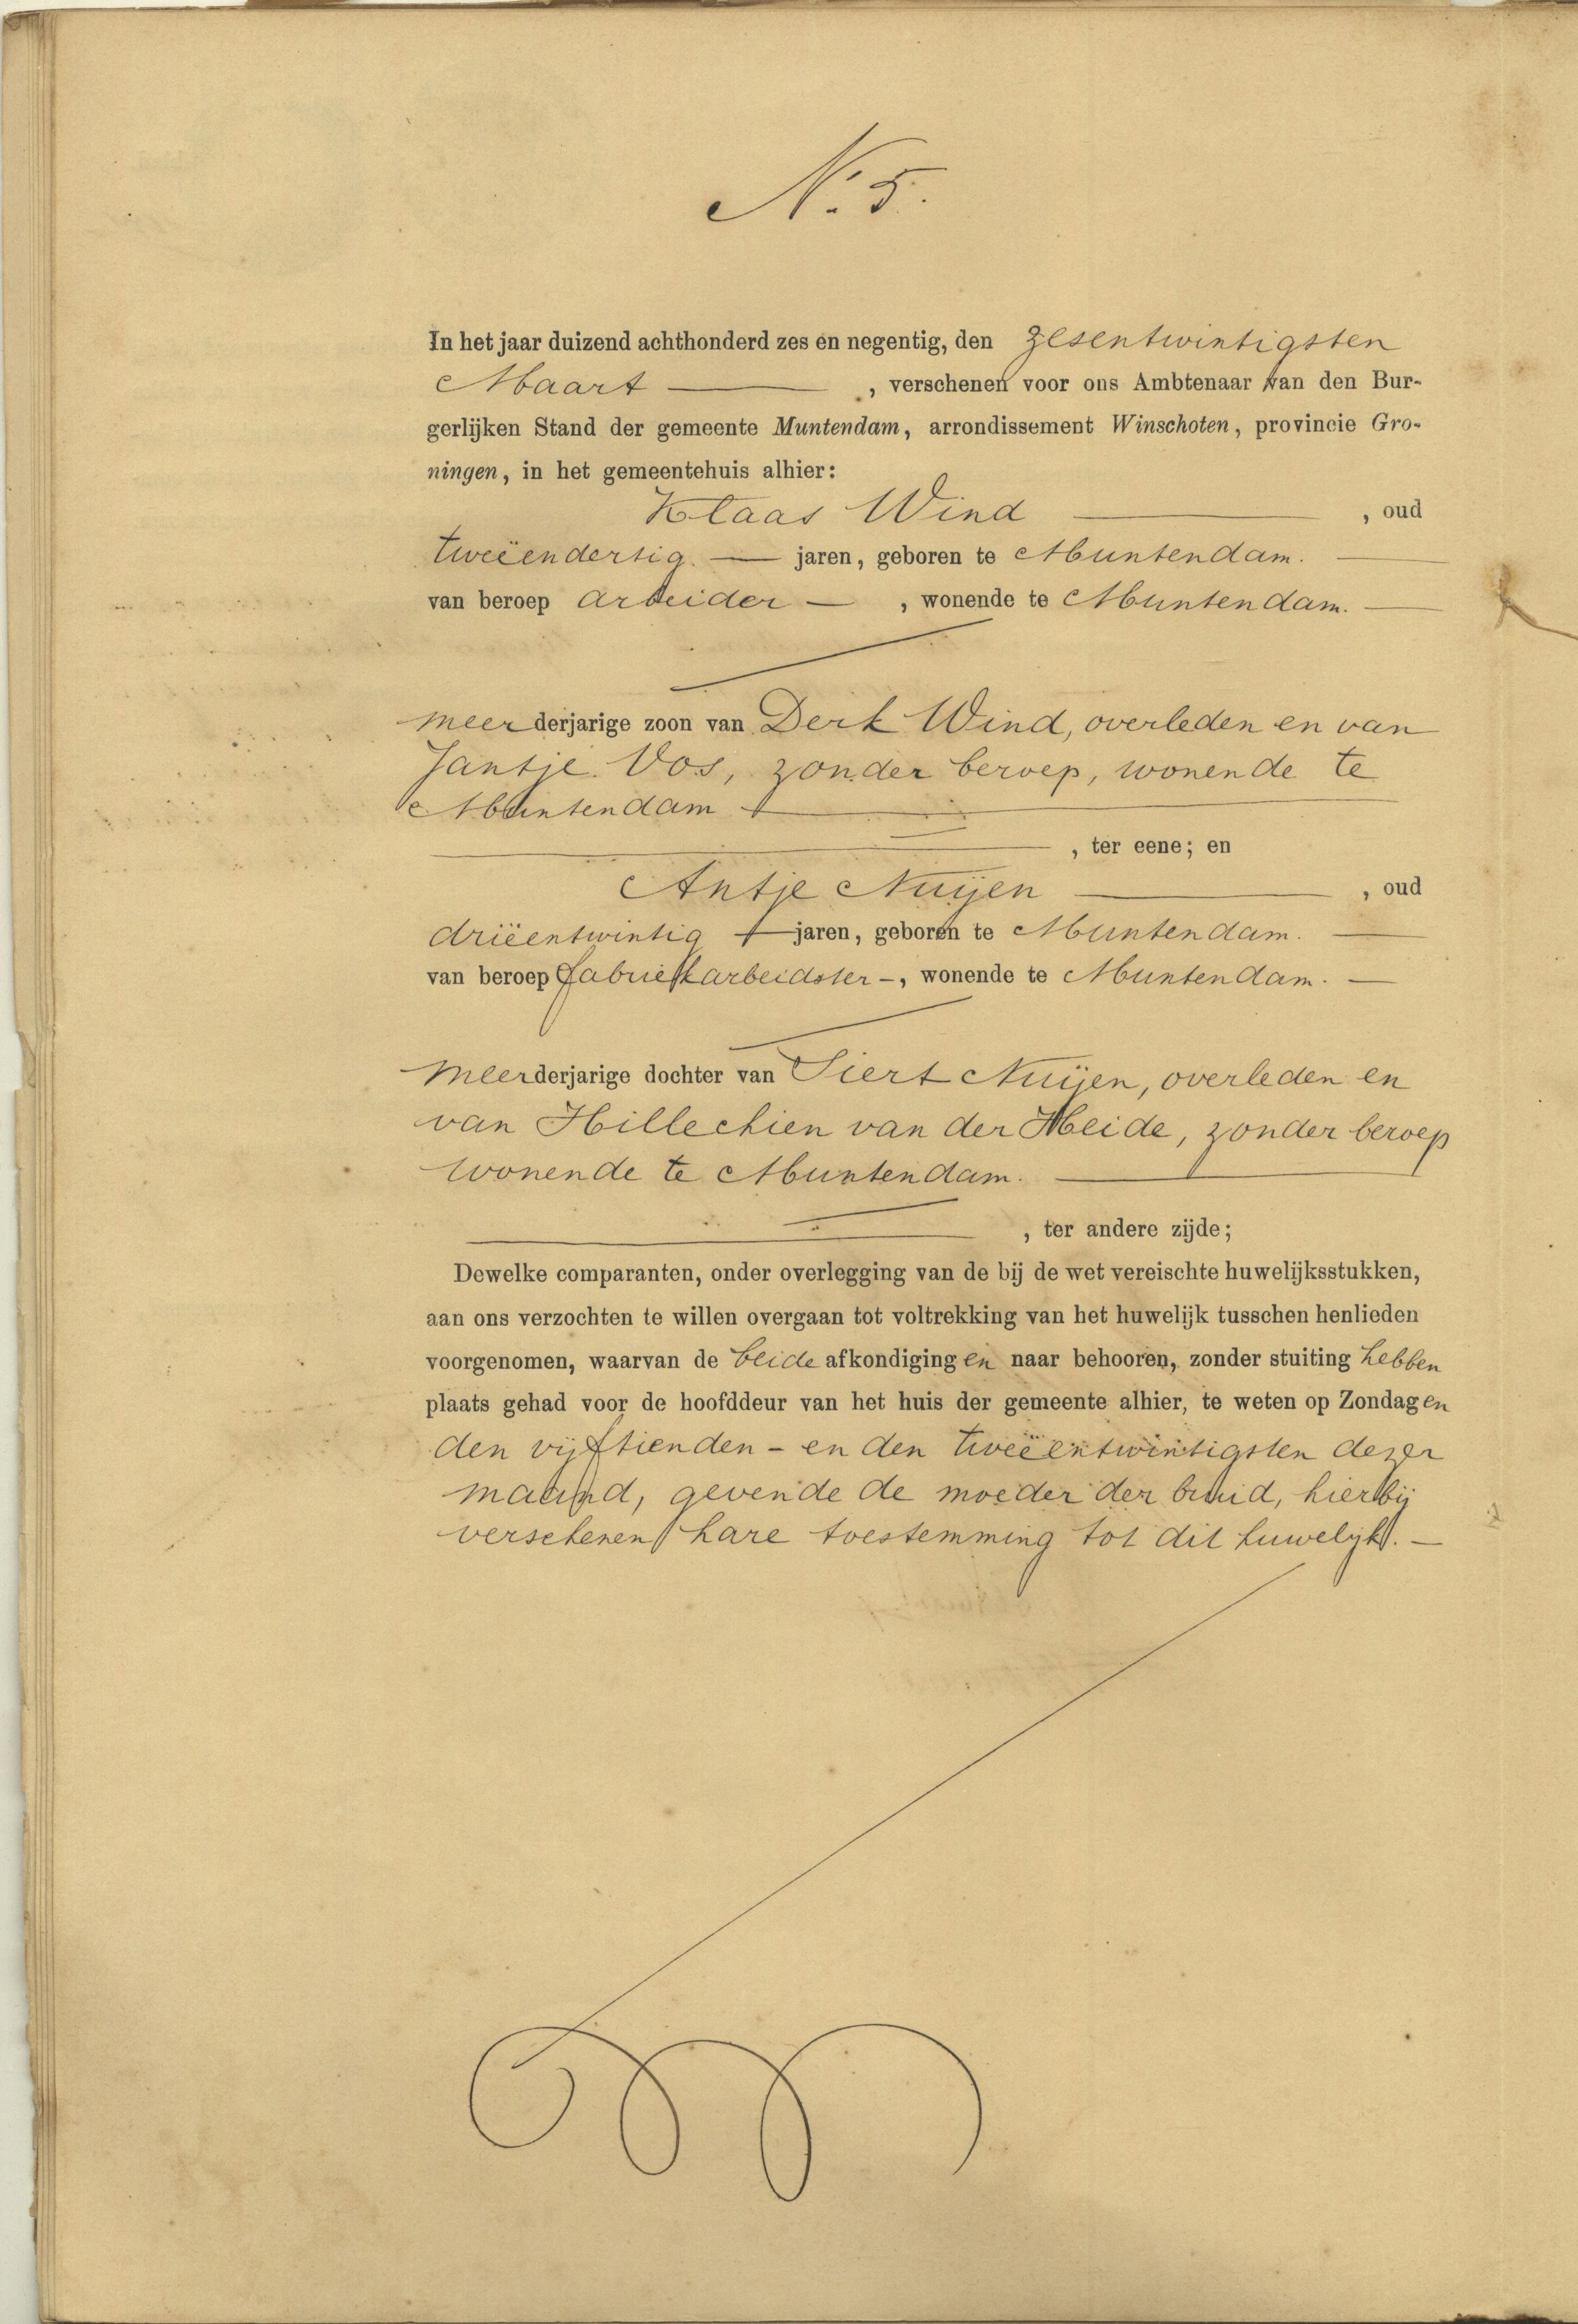 N.º 5.
In het jaar duizend achthonderd zes en negentig, den zesentwintigsten
Maart , verschenen voor ons Ambtenaar van den Bur-
gerlijken Stand der gemeente Muntendam, arrondissement Winschoten, provincie Gro-
ningen, in het gemeentehuis alhier:
Klaas Wind , oud
tweëendertig jaren, geboren te Muntendam.
van beroep arbeider , wonende te Muntendam.
meerderjarige zoon van Derk Wind, overleden en van
Jantje Vos, zonder beroep, wonende te
Muntendam
, ter eene; en
Antje Nuijen , oud
driëentwintig jaren, geboren te Muntendam.
van beroep fabriekarbeidster -, wonende te Muntendam.
meerderjarige dochter van Siert Nuijen, overleden en
van Hillechien van der Heide, zonder beroep
wonende te Muntendam.
, ter andere zijde;
Dewelke comparanten, onder overlegging van de bij de wet vereischte huwelijksstukken,
aan ons verzochten te willen overgaan tot voltrekking van het huwelijk tusschen henlieden
voorgenomen, waarvan de beide afkondigingen naar behooren, zonder stuiting hebben
plaats gehad voor de hoofddeur van het huis der gemeente alhier, te weten op Zondagen
den vijftienden - en den tweëentwintigsten dezer
maand, gevende de moeder der bruid, hierbij
verschenen hare toestemming tot dit huwelijk. —